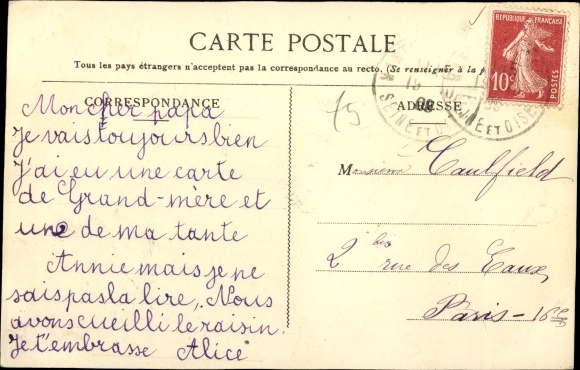 CARTE POSTALE
Tous les pays étrangers n'acceptent pas la correspondance au recto. (Se renseigner à la p
CORRESPONDANCE
ADRESSE
RÉPUBLIQUE FRANÇAISE
10c
POSTES
SEINE ET OISE
SEINE ET OISE
09
75
Mon cher papa
Je vais toujours bien
J'ai eu une carte
de Grand-mère et
une de ma tante
Annie mais je ne
sais pas la lire, Nous
avons cueilli le raisin.
Je t'embrasse Alice
Monsieur Caulfield
2 bis rue des Eaux,
Paris - 16e